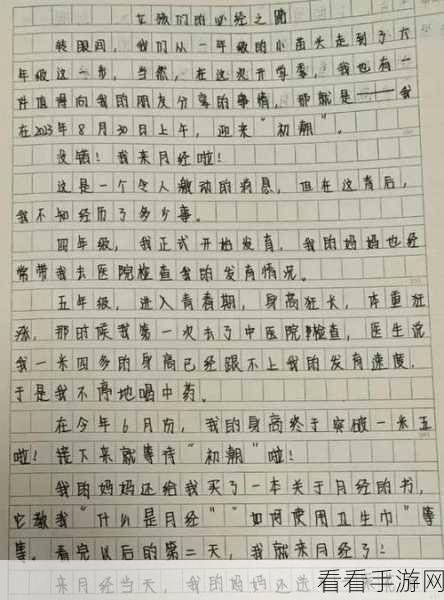 女孩们的必经之路
转眼间，我们从一年级的小苗头走到了六
年级这一步，当然，在这次开学季，我也有一
件值得向我的朋友分享的事情，那就是——我
在2023年8月30日上午，迎来"初潮"。
没错！我来月经啦！
这是一个令人激动的消息，但在这背后，
我不知经历了多少事。
四年级，我正式开始发育，我的妈妈也经
常带我去医院检查我的发育情况。
五年级，进入青春期，身高狂长，体重狂
涨，那时候我第一次去了中医院检查，医生说
我一米四多的身高已经跟不上我的发育速度，
于是我不停地喝中药。
在今年6月份，我的身高终于突破一米五
啦！接下来就等待"初潮"啦！
我的妈妈还给我买了一本关于月经的书，
它教我"什么是月经""如何使用卫生巾"等
等。看完以后的第二天，我就来月经了！
来月经当天，我的妈妈还送
看看手游网